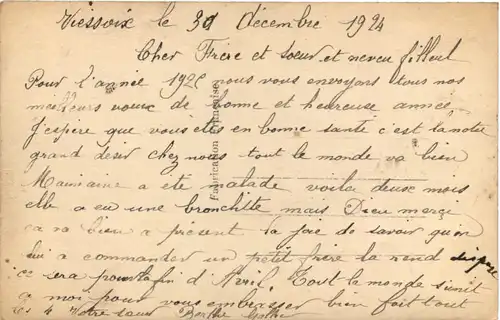 Viessoix le 31 décembre 1924
Cher Frere et soeur et neveu filleul
Pour l'année 1925 nous vous envoyons tous nos
meilleurs voeux de bonne et heureuse année
J'espere que vous etes en bonne santé c'est la notre
grand désir chez nous tout le monde va bien
Mamaine a ete malade voila deux mois
elle a eu une bronchite mais Dieu merci
ca va bien a present la joie de savoir qu'on
lui a commander un petit frere la rend
ce sera pour la fin d'Avril. Tout la monde s'unit
a moi pour vous embrasser bien fort tout
les 4 Votre soeur Berthe
Fabrication Française